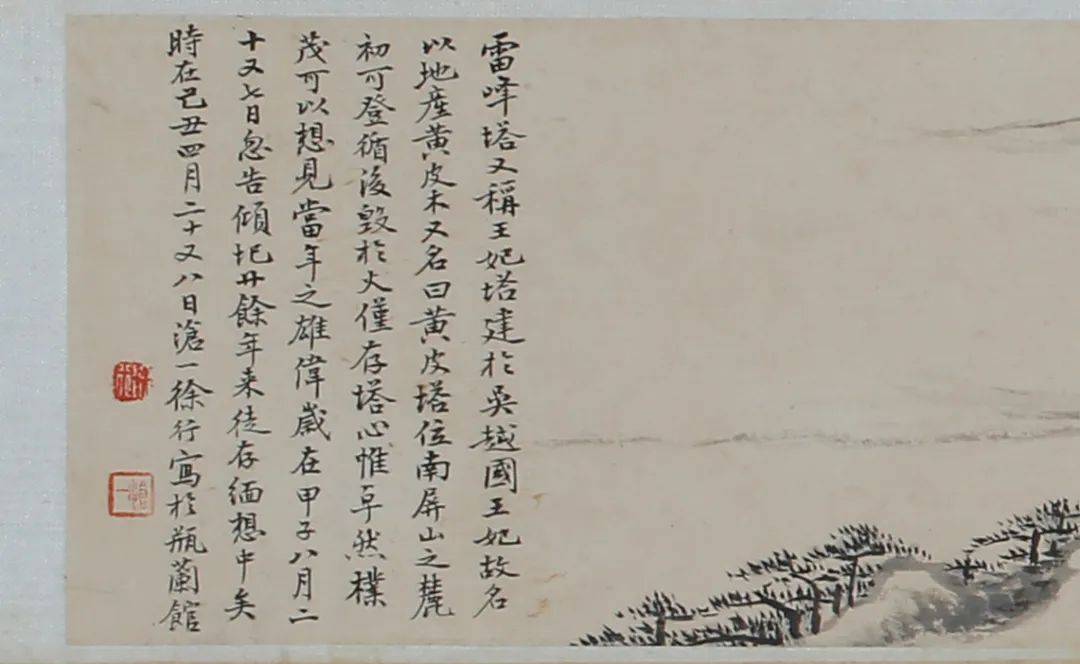 雷峰塔又稱王妃塔建於吳越國王妃故名
以地產黃皮木又名曰黃皮塔位南屏山之麓
初可登循後毀於火僅存塔心惟卓然樸
茂可以想見當年之雄偉歲在甲子八月二
十又七日忽告傾圮廿餘年來徒存緬想中矣
時在己丑四月二十又八日滄一徐行寫於瓶蘭館